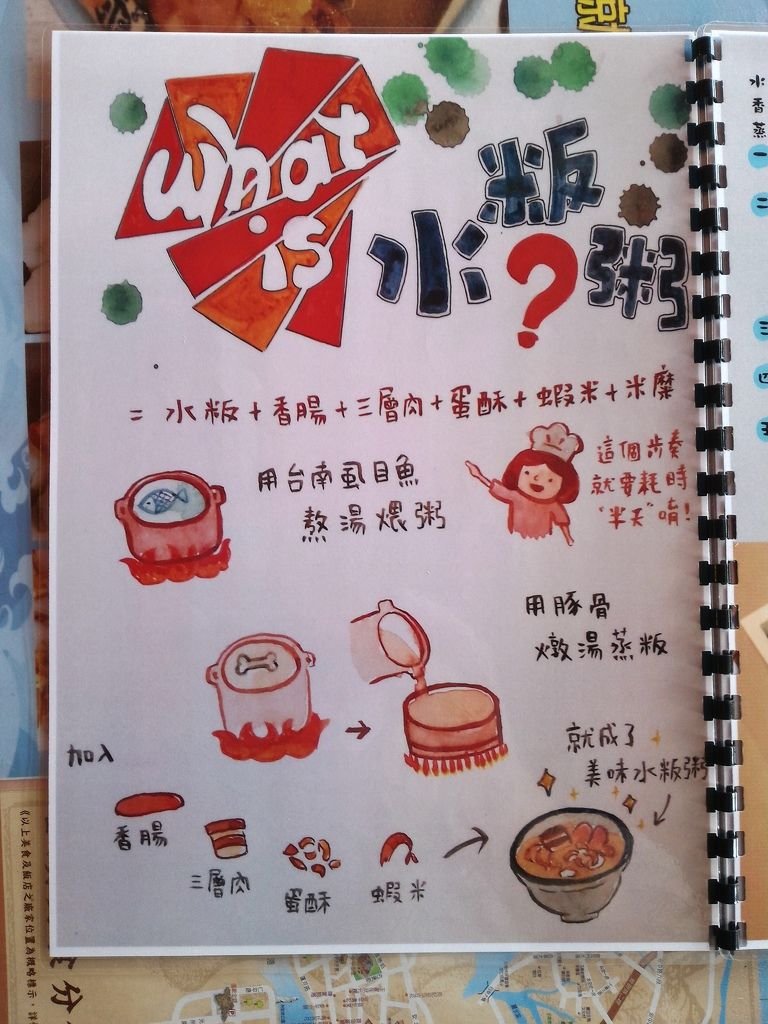 What
is
水粄粥?
= 水粄+香腸+三層肉+蛋酥+蝦米+米糜
用台南虱目魚
熬湯煨粥
這個步奏
就要耗時
"半天"唷!
用豚骨
燉湯蒸粄
加入
就成了
美味水粄粥
香腸
三層肉
蛋酥
蝦米
水
香
蒸
一
二
三
四
五
《以上美食及飯店之廠家位置為概略標示,詳
分